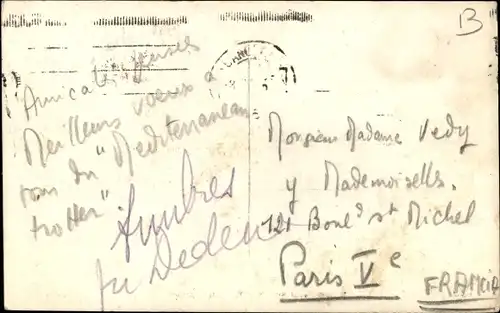 B
Amicales
Meilleurs voeux a
tous du "Mediterranean
trotter"
Timbres
au Dedans
Monsieur Madame Vedy
y Mademoiselle.
121 Boul^d St Michel
Paris V^e
FRANCIA